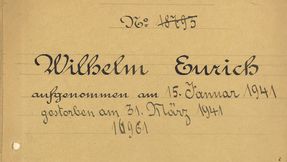 No 18795
Wilhelm Eurich
aufgenommen am 15. Januar 1941
gestorben am 31. März 1941
16961